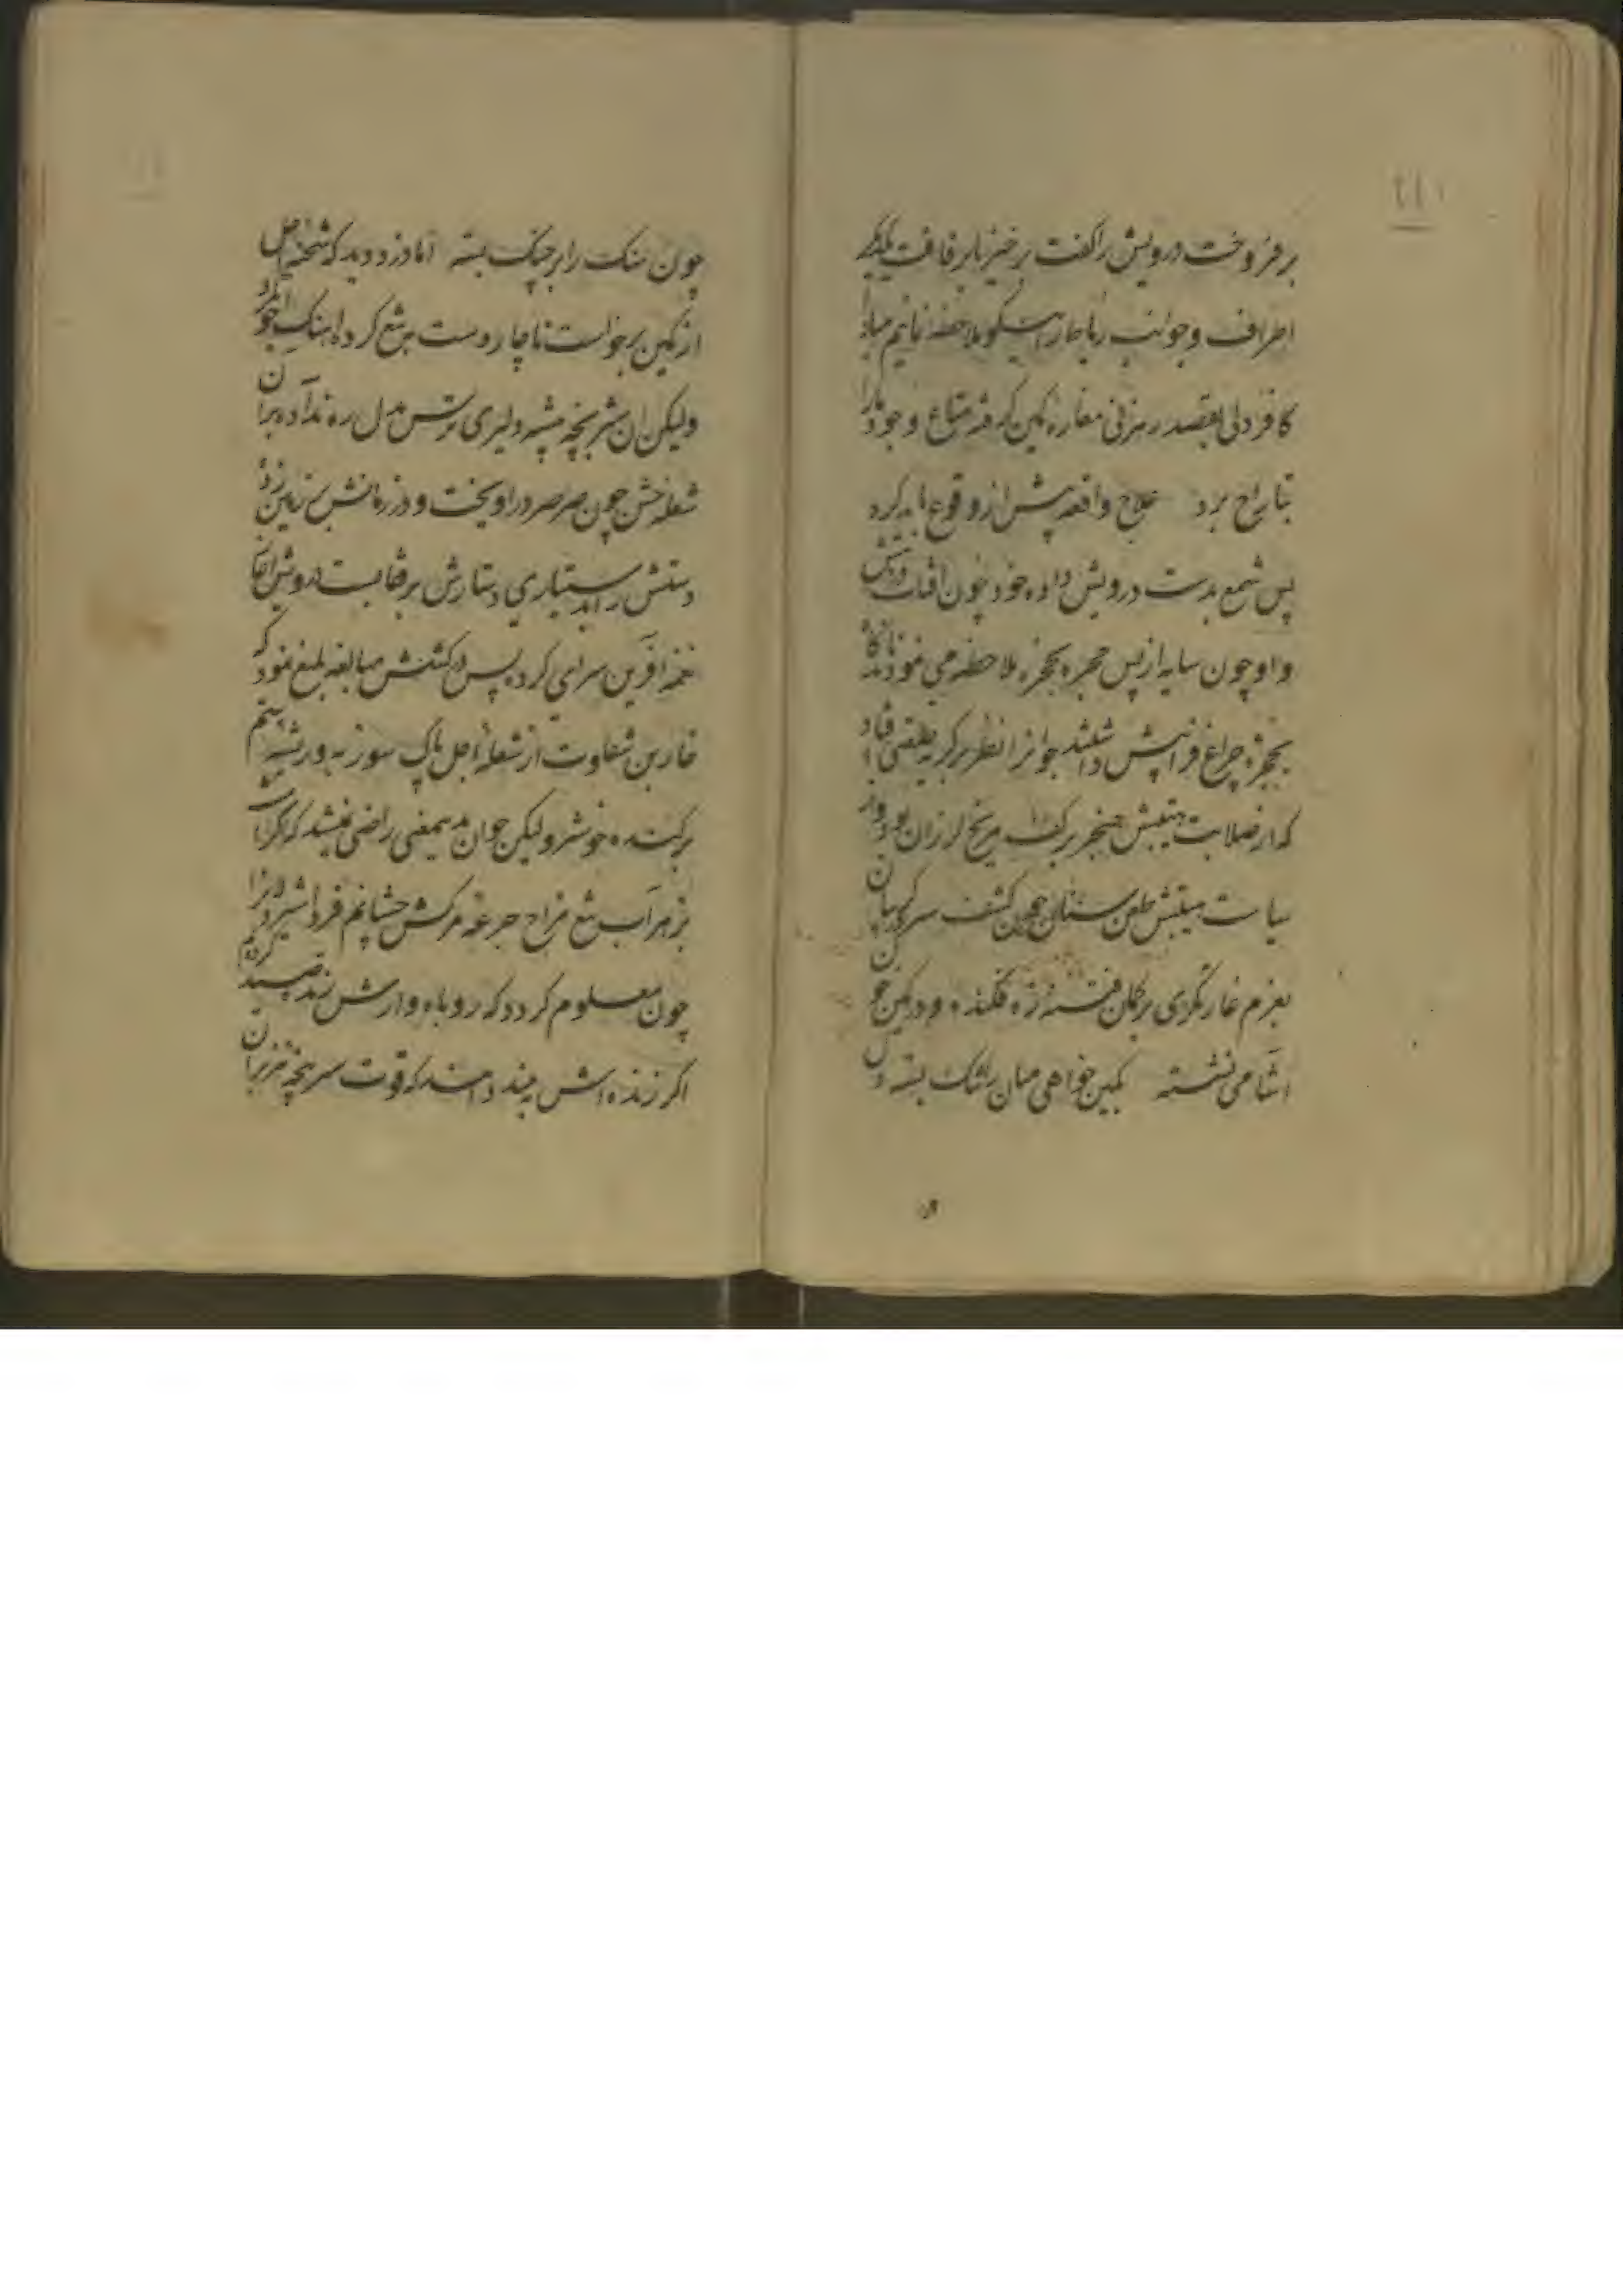 برفروخت درویش را گفت برخیز تا برفاقت یکدیگر
اطراف و جوانب رباط را نیکو ملاحظه نمائیم مبادا
کافر دلی بقصد رهزنی مغاره کمین گرفته متاع وجود ما را
بتاراج برد علاج واقعه پیش از وقوع باید کرد
پس شمع بدست درویش داده خود چون آفتاب در پیش
و او چون سایه از پس حجره بحجره ملاحظه می نمودند ناگاه
بحجره چراغ فرا پیش داشتند جوانرا نظر بر کریه طلعتی افتاد
که از صلابت هیبتش خنجر بر کف مریخ لرزان بود و از
سیاست هیبتش طعن سنان چون کشف سر در گریبان
بعزم غارتگری بر کمان فتنه زه فکنده و در کمین خون
آشامی نشسته بکین خواهی میان تنگ بسته دل
چون سنگ را بر جنگ بسته اما دزد دید که شحنه اجل
از کمین برخواست ناچار دست بر تیغ کرده آهنگ جوانمرد
ولیکن آن شیر بچه بیشه دلیری ترس بدل ره نداده بر آن
شعله خس چون صرصر در آویخت و در زمانش بر زمین زد
دستش را بدستیاری دستارش بر قفا بست درویش آغاز
نغمه آفرین سرای کرد پس در کشتنش مبالغه بلیغ نمود که
خاربن شقاوت از شعله اجل پاک سوز به و ریشه ستم
برکنده خوشتر ولیکن جوان بدیمعنی راضی نمیشد که اگر امشب
بزهرآب تیغ مزاح جرعه مرگش چشانم فردا شیردلانرا
چون معلوم گردد که روباه وارش زنده صید کرده ایم
اگر زنده اش بینند دانند که قوت سرپنجه هژبران